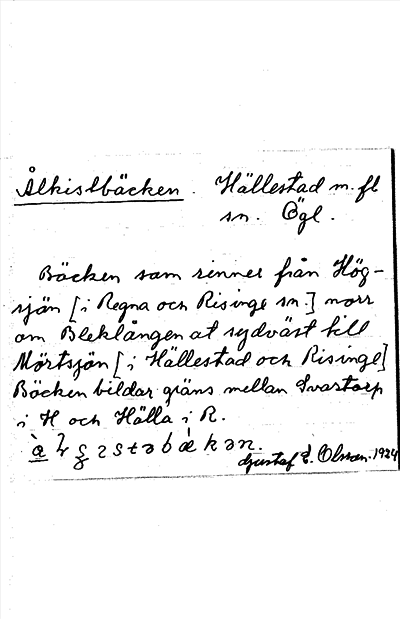 Ålkislbäcken. Hällestad m. fl
sn. Ögl.
Bäcken som rinner från Hög-
sjön [i Regna och Risinge sn.] norr
om Bleklången at sydväst till
Mörtsjön [i Hällestad och Risinge]
Bäcken bildar gräns mellan Svartorp
i H och Hälla i R.
Gustaf E. Olsson. 1924